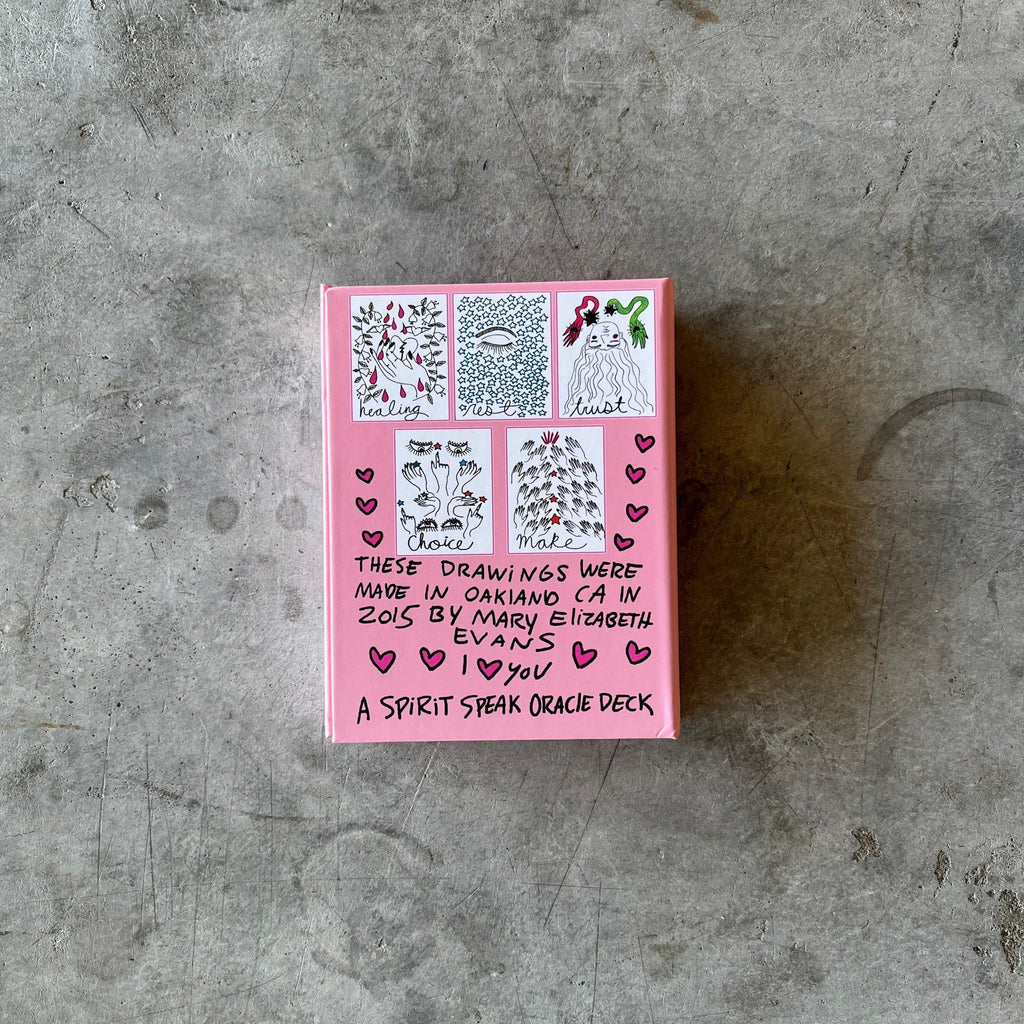 healing
rest
trust
choice
make
THESE DRAWINGS WERE
MADE IN OAKLAND CA IN
2015 BY MARY ELIZABETH
EVANS
I ♥ YOU
A SPIRIT SPEAK ORACLE DECK